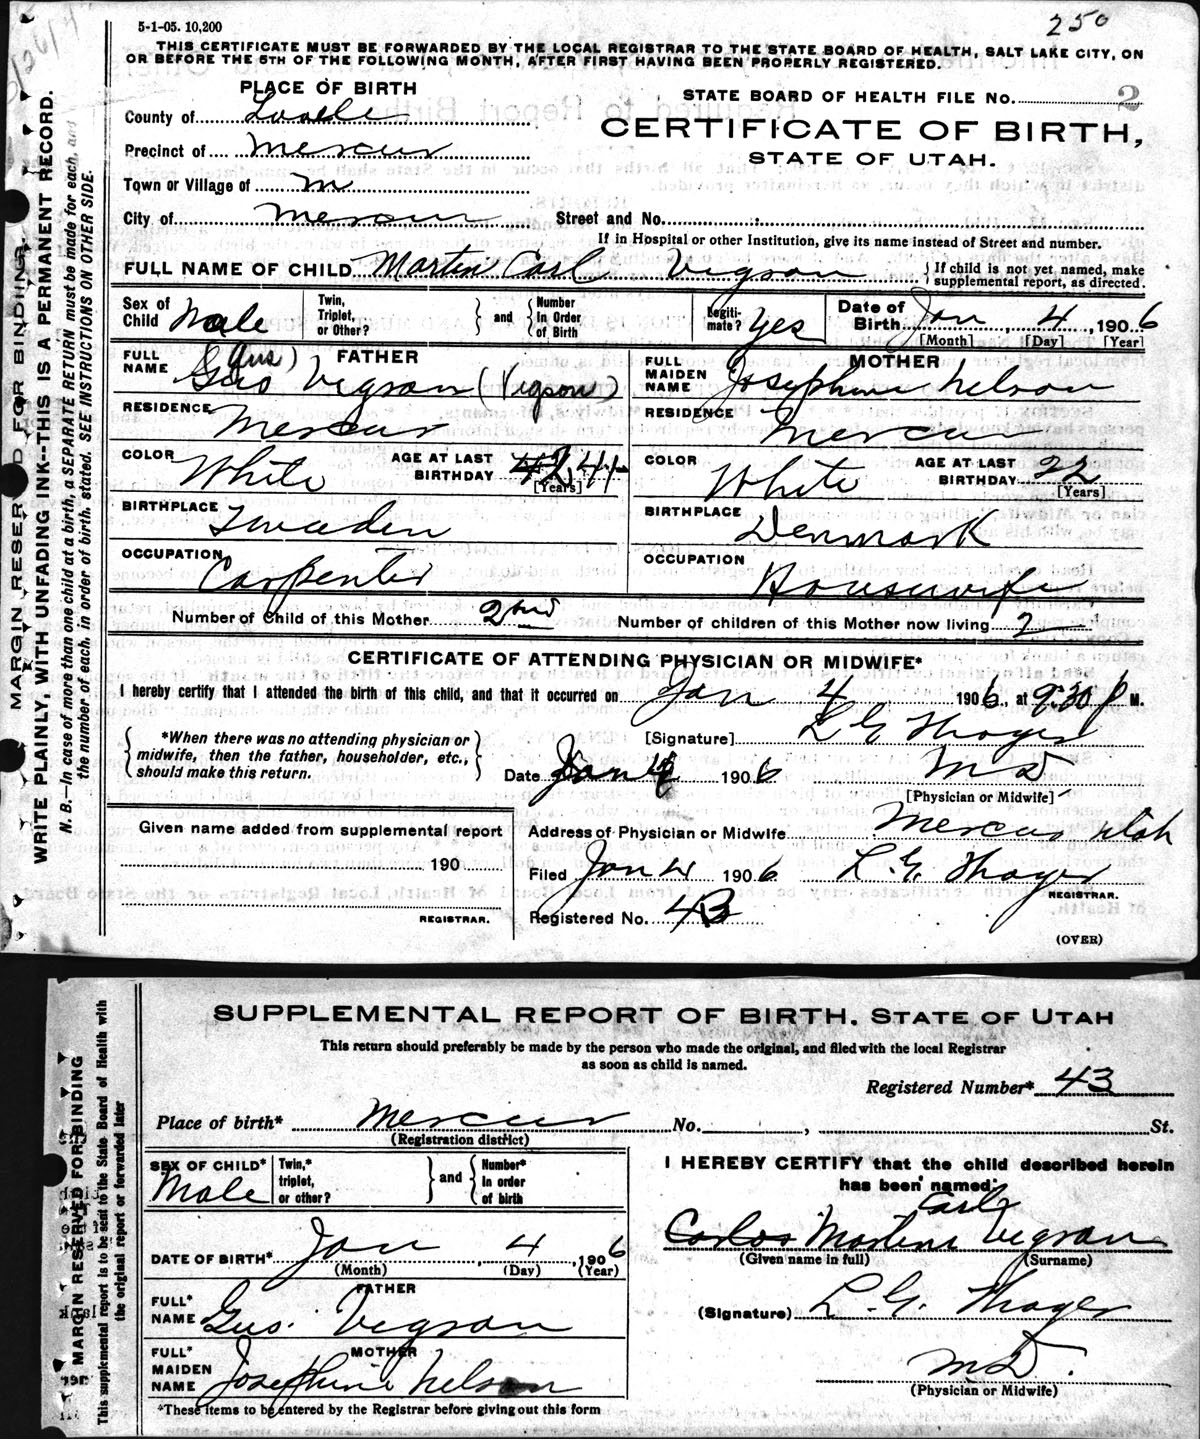 5-1-05. 10,200
250
THIS CERTIFICATE MUST BE FORWARDED BY THE LOCAL REGISTRAR TO THE STATE BOARD OF HEALTH, SALT LAKE CITY, ON
OR BEFORE THE 5TH OF THE FOLLOWING MONTH, AFTER FIRST HAVING BEEN PROPERLY REGISTERED.
PLACE OF BIRTH
STATE BOARD OF HEALTH FILE No. 2
County of Tooele
CERTIFICATE OF BIRTH,
Precinct of Mercur
STATE OF UTAH.
Town or Village of M
City of Mercur Street and No.
If in Hospital or other Institution, give its name instead of Street and number.
FULL NAME OF CHILD Martin Carl Vegson { If child is not yet named, make supplemental report, as directed.
Sex of Child Male Twin, Triplet, or Other? } and { Number In Order of Birth Legiti-mate? Yes Date of Birth Jan 4, 1906
[Month] [Day] [Year]
FULL NAME FATHER (Gus) Gus Vegson (Vigson)
FULL MAIDEN NAME MOTHER Josephine Nelson
RESIDENCE Mercur
RESIDENCE Mercur
COLOR White AGE AT LAST BIRTHDAY 42 41 [Years]
COLOR White AGE AT LAST BIRTHDAY 22 [Years]
BIRTHPLACE Sweden
BIRTHPLACE Denmark
OCCUPATION Carpenter
OCCUPATION Housewife
Number of Child of this Mother 2nd Number of children of this Mother now living 2
CERTIFICATE OF ATTENDING PHYSICIAN OR MIDWIFE*
I hereby certify that I attended the birth of this child, and that it occurred on Jan 4 1906, at 9:30 P M.
{ *When there was no attending physician or midwife, then the father, householder, etc., should make this return. }
[Signature] L G Thayer
Date Jan 4 1906 M D
[Physician or Midwife]
Given name added from supplemental report
190
REGISTRAR.
Address of Physician or Midwife Mercur Utah
Filed Jan 4 1906 L. G. Thayer
REGISTRAR.
Registered No. 43
(OVER)
MARGIN RESERVED FOR BINDING.
WRITE PLAINLY, WITH UNFADING INK--THIS IS A PERMANENT RECORD.
N. B.—In case of more than one child at a birth, a SEPARATE RETURN must be made for each, and
the number of each, in order of birth, stated. SEE INSTRUCTIONS ON OTHER SIDE.
SUPPLEMENTAL REPORT OF BIRTH. STATE OF UTAH
This return should preferably be made by the person who made the original, and filed with the local Registrar
as soon as child is named.
Registered Number* 43
Place of birth* Mercur No. , St.
(Registration district)
SEX OF CHILD* Male Twin,* triplet, or other? } and { Number* in order of birth
I HEREBY CERTIFY that the child described herein
has been named:
Carl
Carlos Martin Vegson
(Given name in full) (Surname)
DATE OF BIRTH* Jan 4, 1906
(Month) (Day) (Year)
FATHER
FULL* NAME Gus. Vegson
(Signature) L. G. Thayer
MOTHER
FULL* MAIDEN NAME Josephine Nelson
M.D.
(Physician or Midwife)
*These items to be entered by the Registrar before giving out this form
MARGIN RESERVED FOR BINDING
This supplemental report is to be sent to the State Board of Health with
the original report or forwarded later